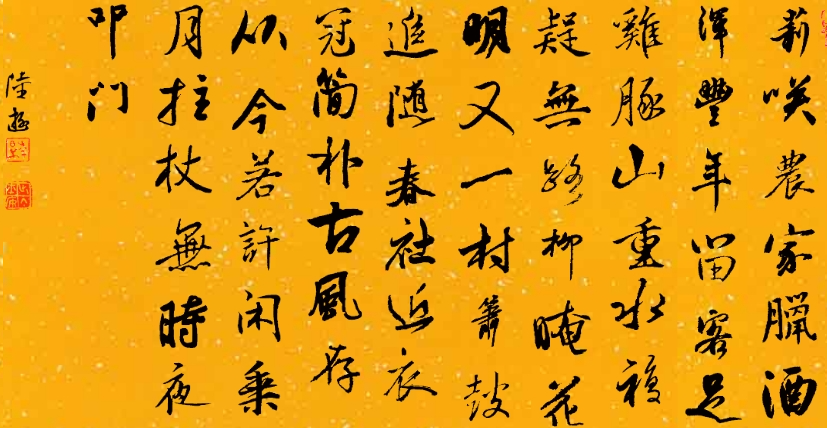 莫咲農家臘酒
渾豐年留客足
雞豚山重水複
疑無路柳晻花
明又一村簫鼓
追随春社近衣
冠简朴古風存
从今若許闲乘
月拄杖無時夜
叩门
陸游